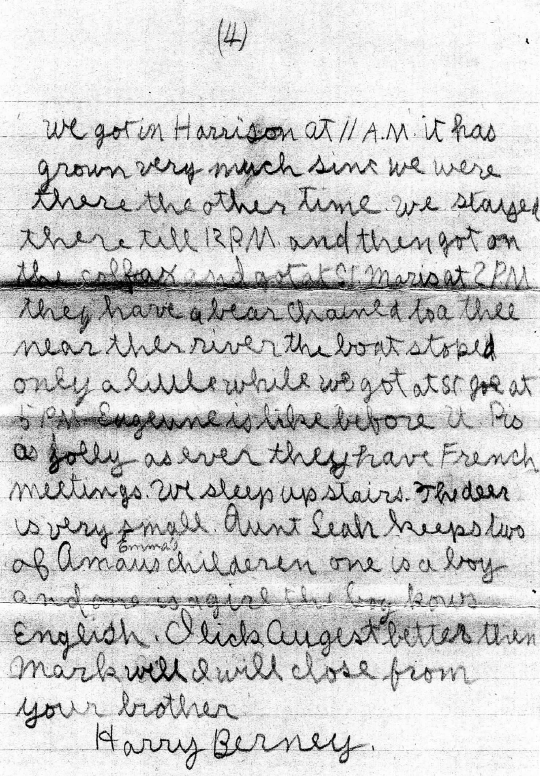 (4)
we got in Harrison at 11 A.M. it has
grown very much sinc we were
there the other time. we stayed
there till 12 P.M. and then got on
the colfax and got at St. Maris at 2 PM
they have a bear chained to a thee
near ther river the boat stoped
only a little while we got at St Joe at
5 PM Eugeune is like before
as jolly as ever they have French
meetings. We sleep up stairs. The deer
is very small. Aunt Leah keeps two
Emma's
of childeren one is a boy
and one is a girl the boy kows
English. I lick Augest better then
Mark will I will close from
your brother
Harry Berney.